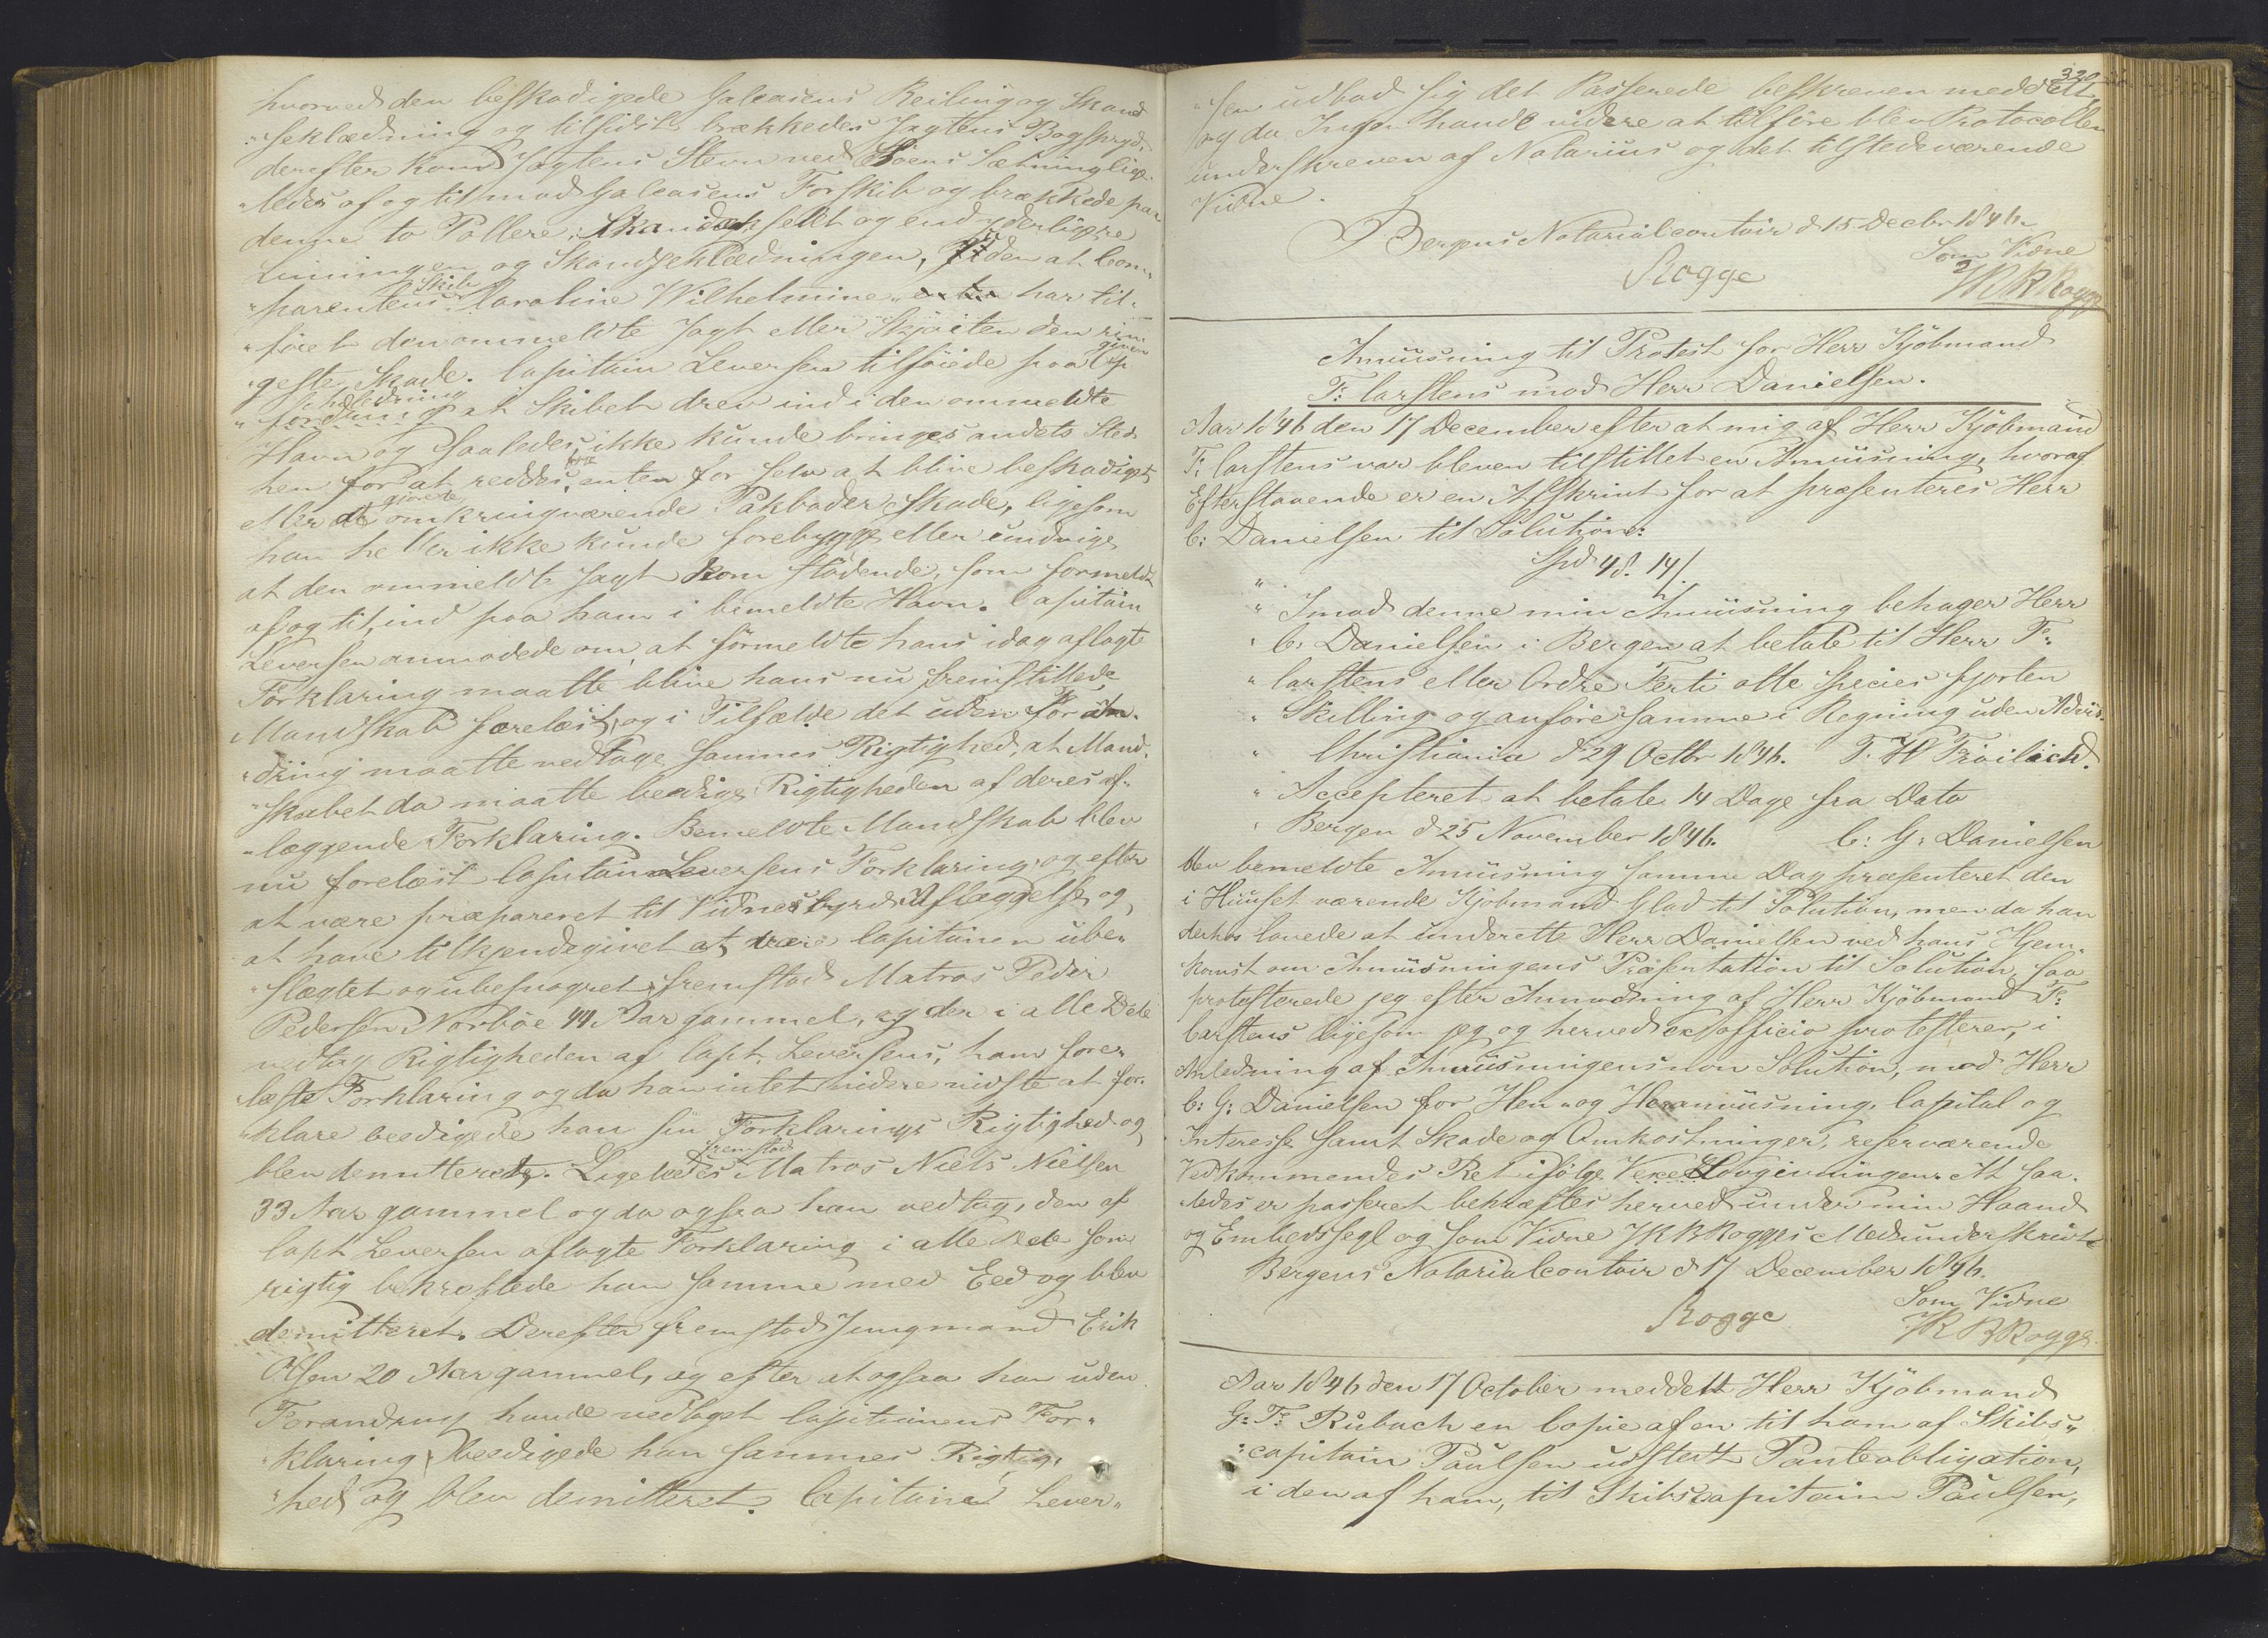 hvorved den beskadigede Galeasens Reiling og Skand-
"seklædning og tilsidst brækkedes Jagtens Bogspryd.
derefter kom Jagtens Stevn ved Søens Sætning lige-
"ledes af og til mod Galeasens Forskib og brækkede paa
denne to Pollere, Skandæk felt og end yderligere
Linningen og Skandseklædningen, uden at Com-
"parentens Skib Caroline Wilhelmine har til-
"føiet den ommeldte Jagt eller Skjøiten den rin-
"geste Skade. Capitain Leversen tilføiede paa given
Anledning at Skibet drev ind i den ommeldte
Havn og saaledes ikke kunde bringes andets Sted
hen for at reddes, enten for selv at blive beskadiget
eller at gjørede omkringværende Pakboder Skade, ligesom
han heller ikke kunde forebygge eller undvige
at den ommeldte Jagt kom stødende, som formeldt
af og til, ind paa ham i bemeldte Havn. Capitain
Leversen anmodede om, at formeldte hans idag aflagte
Forklaring maatte blive hans nu fremstillede
Mandskab forelæst, og i Tilfælde det uden Foran-
"dring maatte vedtage sammes Rigtighed, at Mand-
"skabet da maatte beedige Rigtigheden af deres af-
"læggende Forklaring. Bemeldte Mandskab blev
nu forelæst Capitain Leversens Forklaring og efter
at være præpareret til Vidnesbyrds Aflæggelse og
at have tilkjendegivet at være Capitainen ube-
"slægtet og ubesvogret, fremstod Matros Peder
Pedersen Norbøe 44 Aar gammel, og der i alle Dele
vedtog Rigtigheden af Capt. Leversens, ham fore-
"læste Forklaring og da han intet videre vidste at for-
"klare beedigede han sin Forklarings Rigtighed og
blev demitteret. Ligeledes fremstod Matros Niels Nielsen
33 Aar gammel og da ogsaa han vedtog, den af
Capt Leversen aflagte Forklaring i alle Dele som
rigtig bekræftede han samme med Eed og blev
demitteret. Derefter fremstod Jungmand Erik
Olsen 20 Aar gammel, og efter at ogsaa han uden
Forandring havde vedtaget Capitainens For-
"klaring, beedigede han sammes Rigtig-
"hed og blev demitteret. Capitain Lever-
320
"sen udbad sig det Passerede beskreven meddelt
og da Ingen havde videre at tilføre blev Protocollen
underskreven af Notarius og det tilstedeværende
Vidne.
Bergens Notarialcontoir d 15 Decbr 1846.
Som Vidne
Rogge JRBRogge
Anviisning til Protest for Herr Kjøbmand
F: Carstens mod Herr Danielsen.
Aar 1846 den 17 December efter at mig af Herr Kjøbmand
F: Carstens var bleven tilstillet en Anviisning, hvoraf
Efterstaaende er en Afskrivt for at præsenteres Herr
C: Danielsen til Solution:
Spd 48. 14/.
" Imod denne min Anviisning behager Herr
" C. Danielsen i Bergen at betale til Herr F:
" Carstens eller Ordre Førti otte Species fjorten
" Skilling og anføre samme i Regning uden Advis.
" Christiania d 29 Octbr 1846. F. H Frøilich.
" Accepteret at betale 14 Dage fra Dato
" Bergen d 25 November 1846. C: G: Danielsen
blev bemeldte Anviisning samme Dag præsenteret den
i Huuset værende Kjøbmand Glad til Solution, men da han
derhos lovede at underrette Herr Danielsen ved hans Hjem-
komst om Anviisningens Præsentation til Solution, saa
protesterede jeg efter Anmodning af Herr Kjøbmand F:
Carstens ligesom jeg og herved ex officio protesterer, i
Anledning af Anviisningens non Solution, mod Herr
C: G: Danielsen for Hen- og Heranviisning, Capital og
Interesse samt Skade og Omkostninger, reserverende
Vedkommendes Ret ifølge Vexellovgivningen. At saa-
"ledes er passeret bekræftes herved under min Haand
og Embedssegl og som Vidne JRBRogges Medunderskrivt
Bergens Notarialcontoir d 17 December 1846.
Som Vidne
Rogge JRBRogge
Aar 1846 den 17 October meddelt Herr Kjøbmand
G: F: Rubach en Copie af en til ham af Skibs-
"capitain Paulsen udstedt Panteobligation,
i den af ham, til Skibscapitain Paulsen,